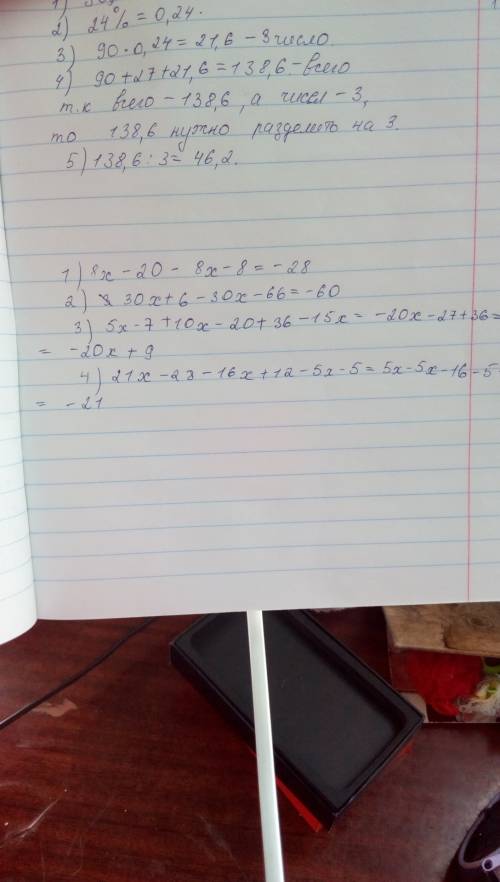 2) 24% = 0,24.
3) 90 · 0,24 = 21,6 - 3 число
4) 90 + 27 + 21,6 = 138,6 - всего
т.к всего - 138,6, а чисел - 3,
то 138,6 нужно разделить на 3.
5) 138,6 : 3 = 46,2.
1) 8x - 20 - 8x - 8 = -28
2) 30x + 6 - 30x - 66 = -60
3) 5x - 7 + 10x - 20 + 36 - 15x = -20x - 27 + 36 =
= -20x + 9
4) 21x - 23 - 16x + 12 - 5x - 5 = 5x - 5x - 16 - 5
= -21